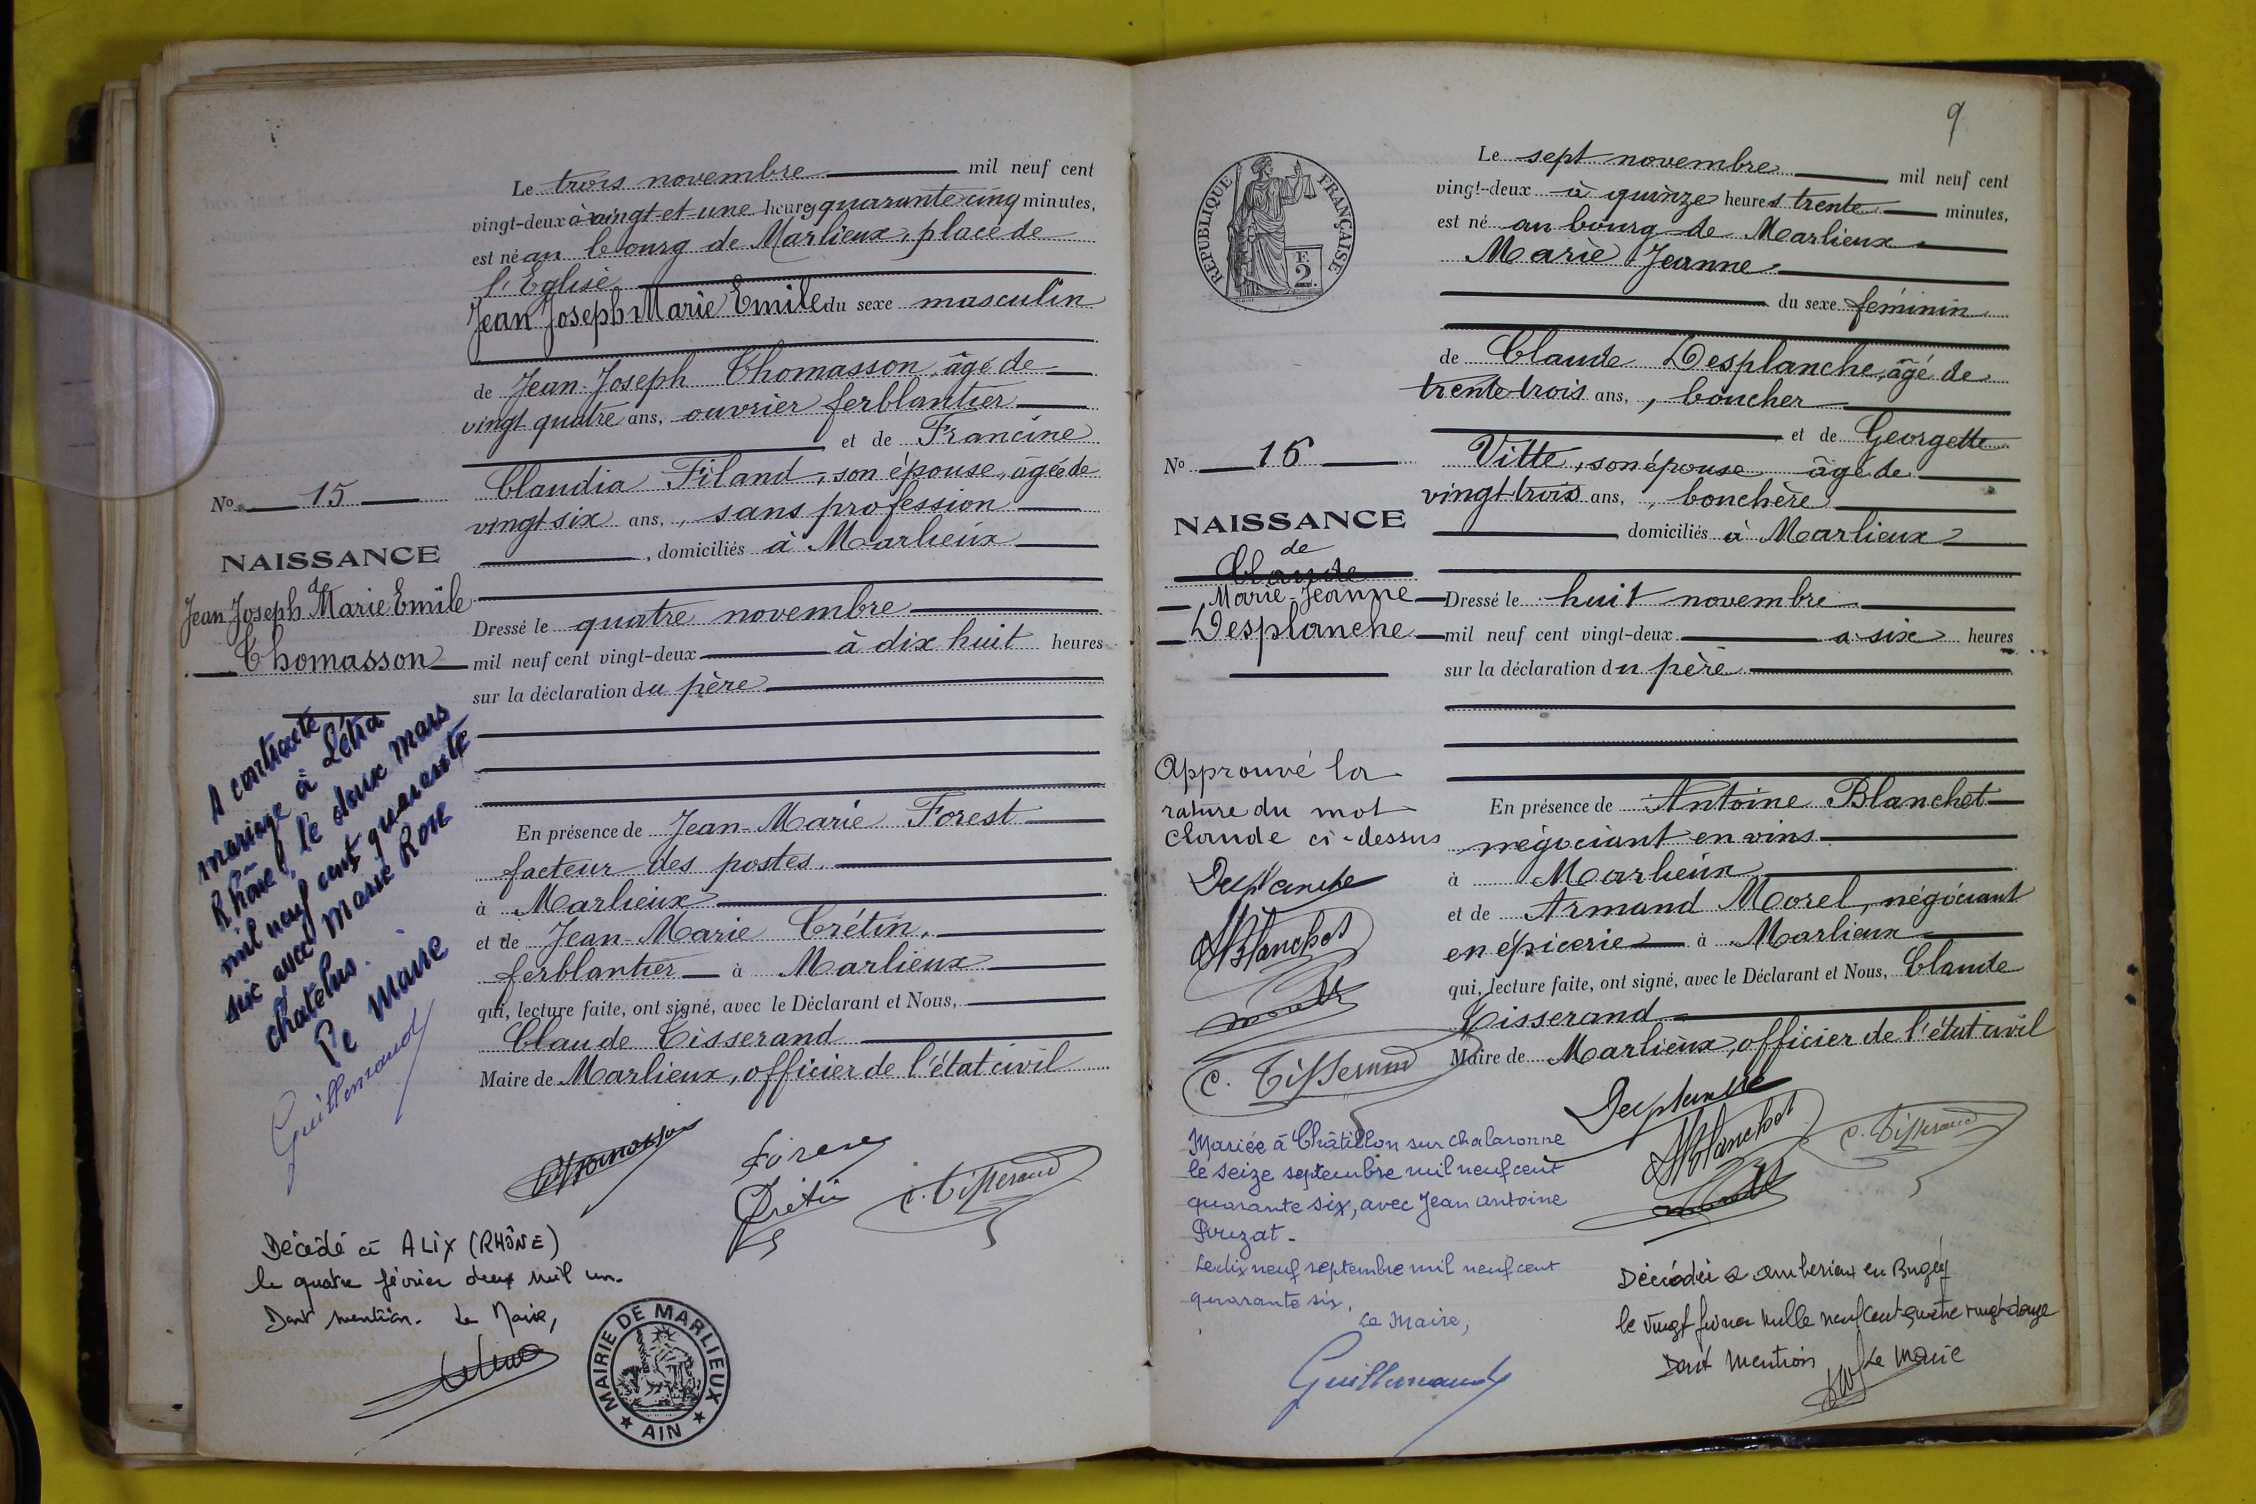 Le trois novembre mil neuf cent
vingt-deux à vingt et une heures quarante cinq minutes,
est né au bourg de Marlieux, place de
l'Eglise
Jean Joseph Marie Emile du sexe masculin
de Jean Joseph Thomasson, âgé de
vingt quatre ans, ouvrier ferblantier
et de Francine
Claudia Filand, son épouse, âgée de
vingt six ans, , sans profession
, domiciliés à Marlieux
Dressé le quatre novembre
mil neuf cent vingt-deux à dix huit heures
sur la déclaration du père
En présence de Jean-Marie Forest
facteur des postes.
à Marlieux
et de Jean-Marie Crétin,
ferblantier à Marlieux
qui, lecture faite, ont signé, avec le Déclarant et Nous,
Claude Tisserand
Maire de Marlieux, officier de l'état civil
Thomasson
Forest
Crétin
C. Tisserand
No 15
NAISSANCE
de
Jean Joseph Marie Emile
Thomasson
A contracté
mariage à Létra
Rhône, le douze mars
mil neuf cent quarante
six avec Marie Rose
Chatelus.
Le Maire
Guillemaud
Décédé à ALIX (RHÔNE)
le quatre février deux mil un.
Dont mention. Le Maire,
MAIRIE DE MARLIEUX
AIN
9
REPUBLIQUE FRANÇAISE
F.
2.
Le sept novembre mil neuf cent
vingt-deux à quinze heures trente minutes,
est né au bourg de Marlieux
Marie Jeanne
du sexe féminin
de Claude Desplanche, âgé de
trente trois ans, , boucher
et de Georgette
Vitte, son épouse âgé de
vingt trois ans, , bouchère
domiciliés à Marlieux
Dressé le huit novembre
mil neuf cent vingt-deux a six heures
sur la déclaration du père
En présence de Antoine Blanchet
négociant en vins
à Marlieux
et de Armand Morel, négociant
en épicerie à Marlieux
qui, lecture faite, ont signé, avec le Déclarant et Nous, Claude
Tisserand
Maire de Marlieux, officier de l'état civil
Desplanche
ABlanchet
C. Tisserand
No 16
NAISSANCE
de
Claude
Marie-Jeanne
Desplanche
Approuvé la
rature du mot
Claude ci-dessus
Desplanche
ABlanchet
C. Tisserand
Mariée à Châtillon sur Chalaronne
le seize septembre mil neuf cent
quarante six, avec Jean Antoine
Le dix neuf septembre mil neuf cent
quarante six,
Le Maire,
Guillemaud
Décédée à Amberieux en Bugey
le vingt février mille neuf cent quatre vingt douze
Dont Mention Le Maire